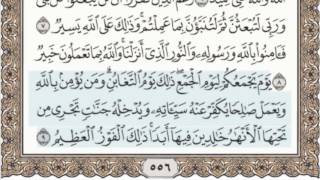 وَرَبِّي لَتُبْعَثُنَّ ثُمَّ لَتُنَبَّؤُنَّ بِمَا عَمِلْتُمْ ۚ وَذَٰلِكَ عَلَى ٱللَّهِ يَسِيرٌ ٧
فَـَٔامِنُوا۟ بِٱللَّهِ وَرَسُولِهِۦ وَٱلنُّورِ ٱلَّذِىٓ أَنزَلْنَا ۚ وَٱللَّهُ بِمَا تَعْمَلُونَ خَبِيرٌ
٨ يَوْمَ يَجْمَعُكُمْ لِيَوْمِ ٱلْجَمْعِ ۖ ذَٰلِكَ يَوْمُ ٱلتَّغَابُنِ ۗ وَمَن يُؤْمِنۢ بِٱللَّهِ
وَيَعْمَلْ صَٰلِحًا يُكَفِّرْ عَنْهُ سَيِّـَٔاتِهِۦ وَيُدْخِلْهُ جَنَّٰتٍ تَجْرِى مِن
تَحْتِهَا ٱلْأَنْهَٰرُ خَٰلِدِينَ فِيهَآ أَبَدًا ۚ ذَٰلِكَ ٱلْفَوْزُ ٱلْعَظِيمُ ٩
٥٥٦